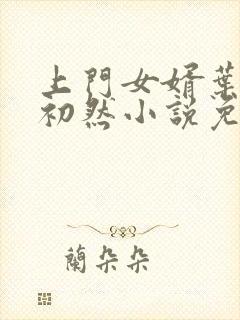 上門女婿葉
初然小說免
蘭朵朵